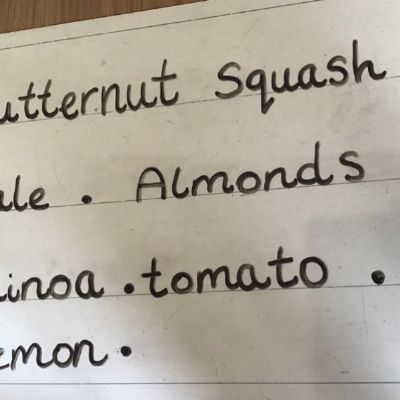 utternut Squash
ale . Almonds
inoa . tomato .
emon .